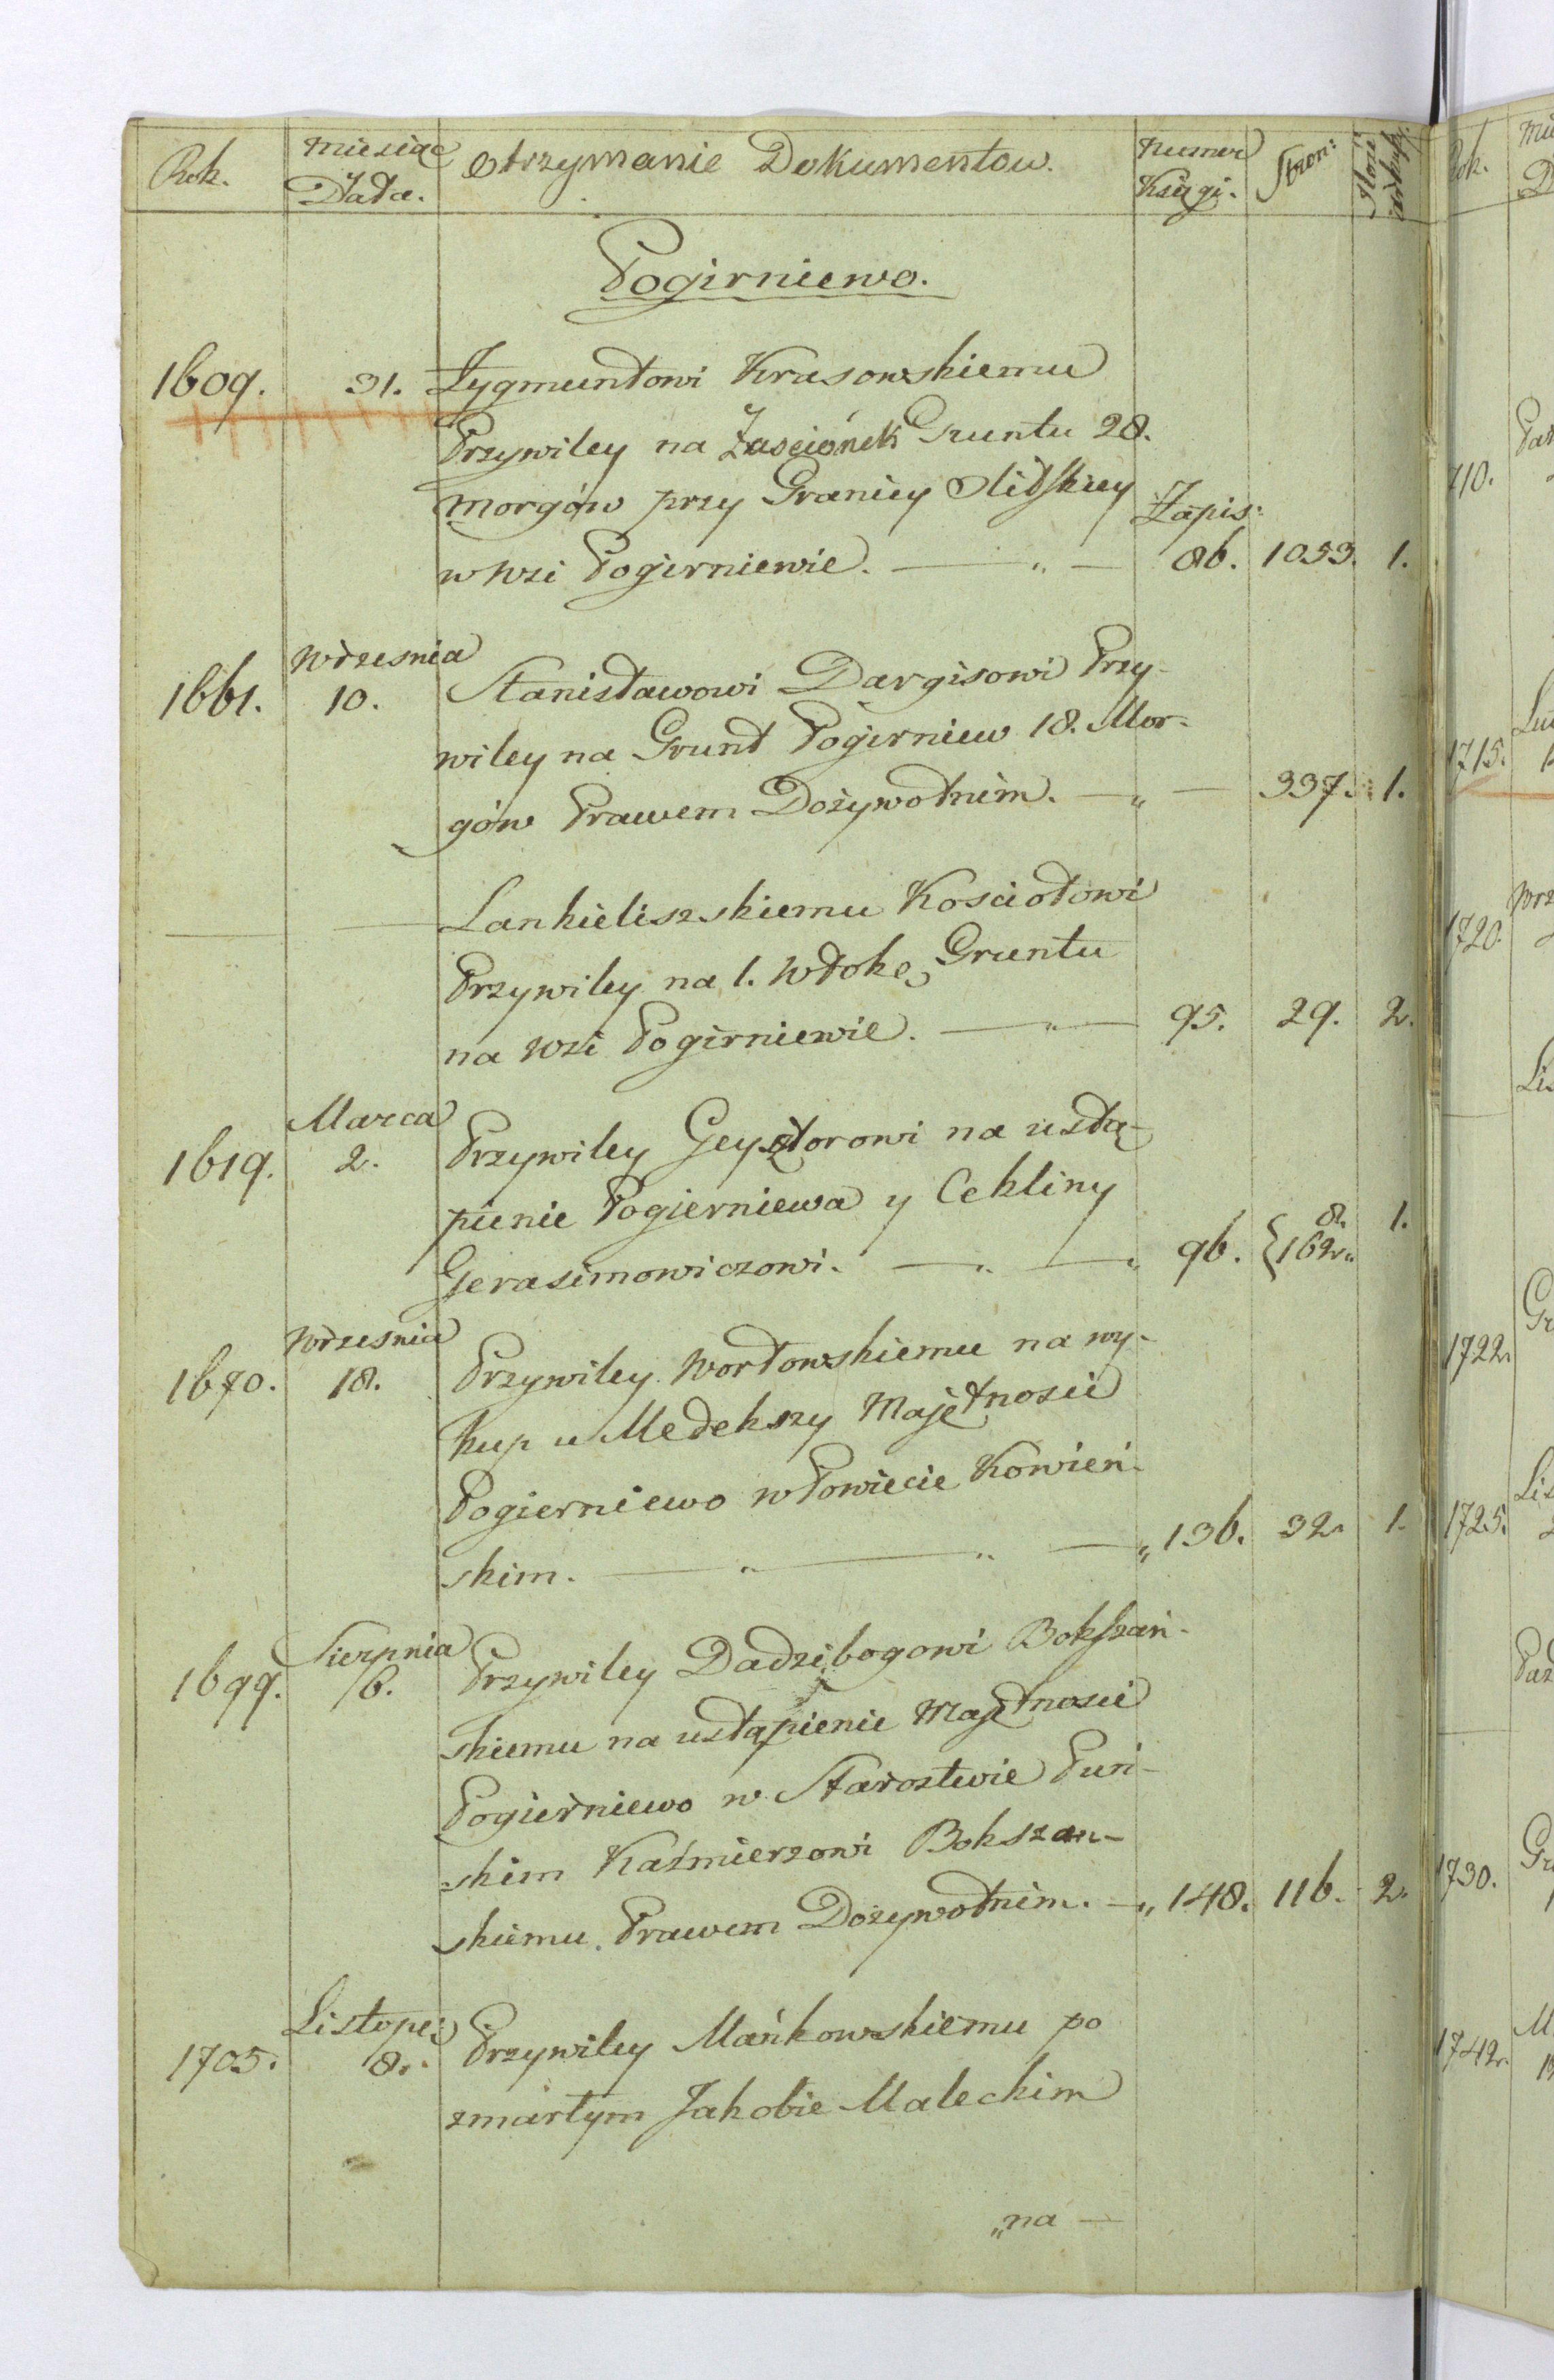 Rok. Miesiąc Data. Otrzymanie Dokumentow. Numer Księgi. Stron: Ilość arkuszy.
Pogirniewo.
1609. 31. Zygmuntowi Krasowskiemu
Przywiley na Zascionek Gruntu 28.
Morgów przy Granicy Olitskiey Zapis:
w wsi Pogirniewie. — „ — 86. 1053. 1.
Wrzesnia
1661. 10. Stanisławowi Dargisowi Przy-
wiley na Grunt Pogirniew 18. Mor-
gów Prawem Dożywotnim. — „ — 337. 1.
— — Lankieliszskiemu Kosciołowi
Przywiley na 1. Włokę Gruntu
na wsi Pogirniewie. — „ — 95. 29. 2.
Marca
1619. 2. Przywiley Geysztorowi na ustą-
pienie Pogierniewa y Cekliny
Gerasimowiczowi. — „ — „ 96. { 8. 162. „ 1.
Wrzesnia
1670. 18. Przywiley Wortowskiemu na wy-
kup u Medekszy Majętnosci
Pogierniewo w Powiecie Kowień-
skim. — „ — „ — „ 136. 32. 1.
Sierpnia
1699. 16. Przywiley Dadzibogowi Bokszań-
skiemu na ustąpienie Majętnosci
Pogierniewo w Starostwie Puń-
skim Kaźmierzowi Bokszan-
skiemu Prawem Dożywotnim. — „ 148. 116. 2.
Listope:
1705. 8. Przywiley Mańkowskiemu po
zmarłym Jakobie Maleckim
„na —
710.
1715.
1720.
1722.
1725.
1730.
1742.